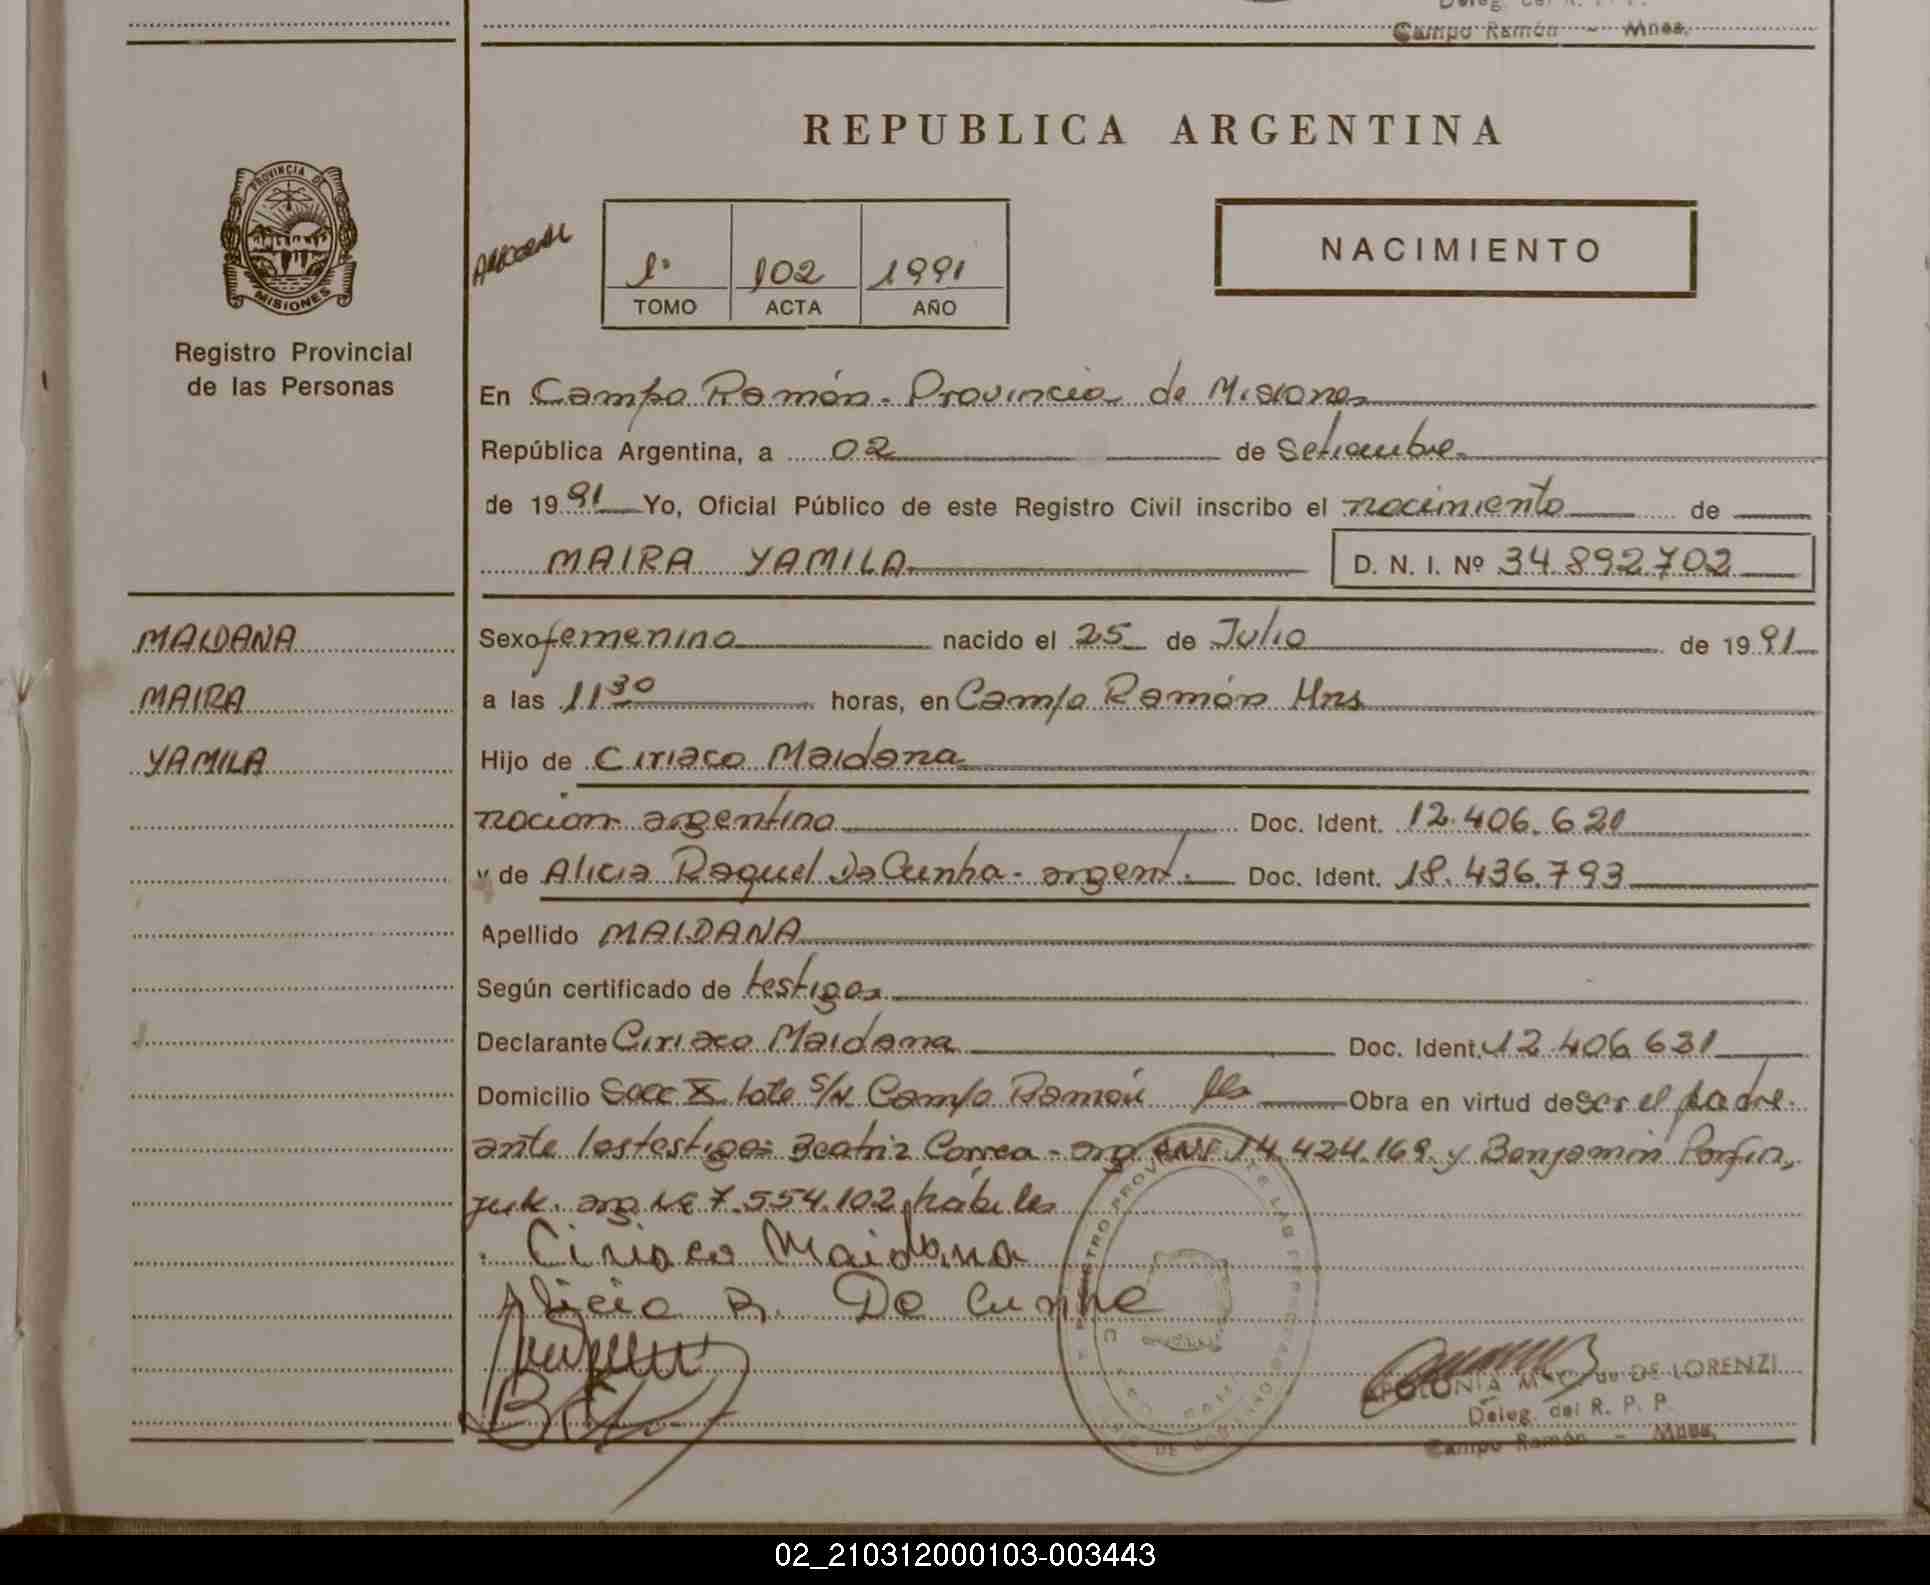 Campo Ramón - Mnes.
REPUBLICA ARGENTINA
PROVINCIA DE
MISIONES
Registro Provincial
de las Personas
1º 102 1991
TOMO ACTA AÑO
NACIMIENTO
En Campo Ramón - Provincia de Misiones
República Argentina, a 02 de Setiembre
de 1991 Yo, Oficial Público de este Registro Civil inscribo el nacimiento de
MAIRA YAMILA D. N. I. Nº 34.892.702
MAIDANA
MAIRA
YAMILA
Sexo femenino nacido el 25 de Julio de 1991
a las 11 30 horas, en Campo Ramón Mns
Hijo de Ciriaco Maidana
nacion argentino Doc. Ident. 12.406.621
y de Alicia Raquel Da Cunha - argent. Doc. Ident. 18.436.793
Apellido MAIDANA
Según certificado de testigos
Declarante Ciriaco Maidana Doc. Ident. 12.406.631
Domicilio Secc X lote s/N Campo Ramón Obra en virtud de ser el padre
ante los testigos Beatriz Correa - arg DNI 14.424.169 y Benjamin
arg LE 7.554.102 hábiles
Ciriaco Maidana
Alicia R. Da Cunha
DE LORENZI
Deleg. del R. P. P.
Campo Ramón - Mnes.
02_210312000103-003443